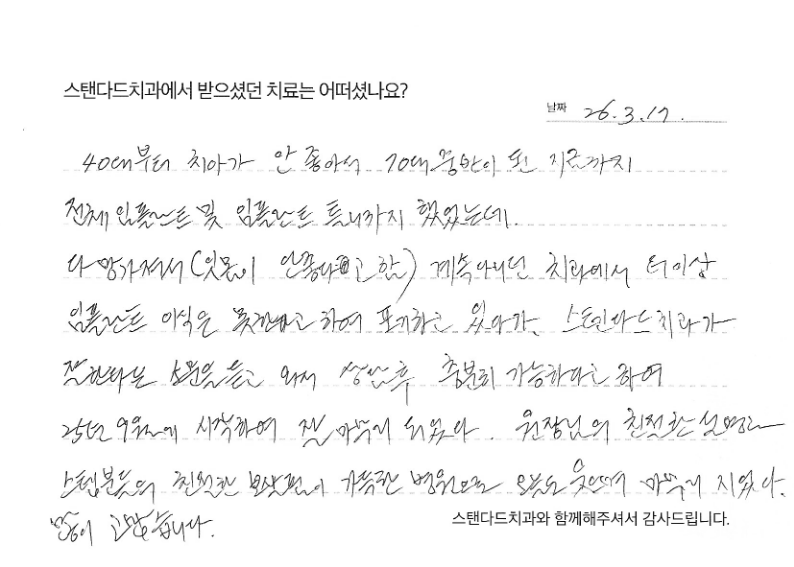 스탠다드치과에서 받으셨던 치료는 어떠셨나요?
날짜 26.3.17.
40대부터 치아가 안 좋아서 70대 중반이 된 지금까지
전체 임플란트 및 임플란트 틀니까지 했었는데.
다 망가져서(잇몸이 안좋다고 함) 계속 다니던 치과에서 더이상
임플란트 이식은 못한다고 하여 포기하고 있다가, 스탠다드치과가
잘한다는 소문을 듣고 와서 상담 후 충분히 가능하다고 하여
25년 9월에 시작하여 잘 마무리 되었다. 원장님의 친절한 설명과
스텝분들의 친절한 보살핌이 가득한 병원으로 오늘도 웃으며 마무리 지었다.
많이 고맙습니다.
스탠다드치과와 함께해주셔서 감사드립니다.